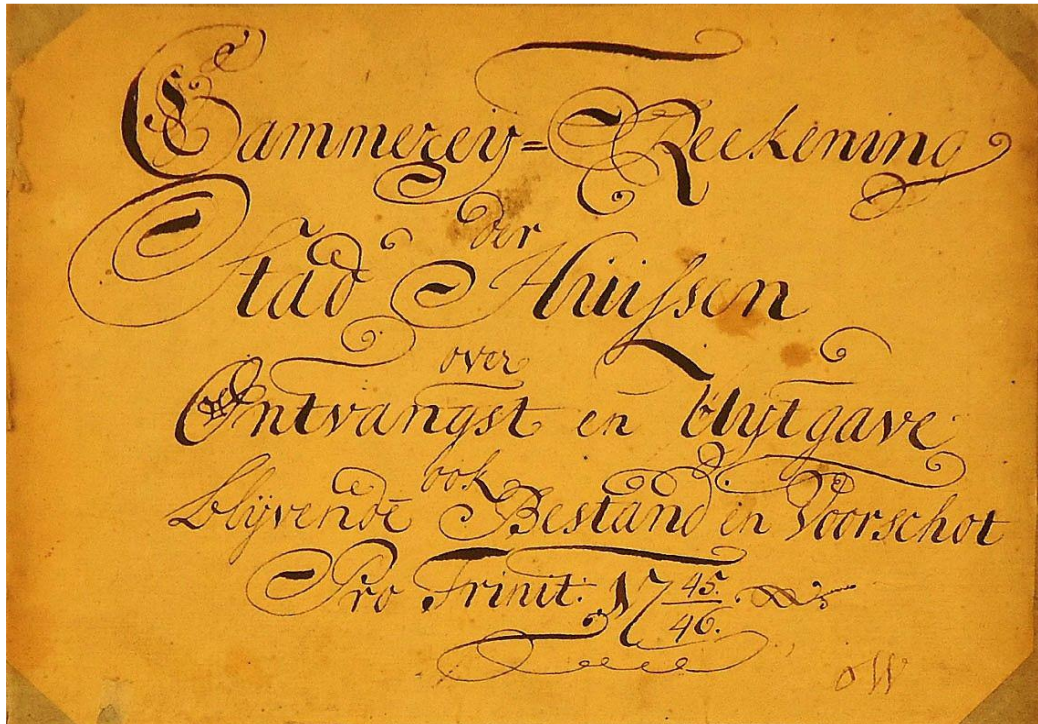 Cammereij=Reekening
der
Stad Huissen
over
Ontvangst en Uÿtgave
ook
blijvende Bestand en Voorschot
Pro Trinit: 17 45./46.
oW